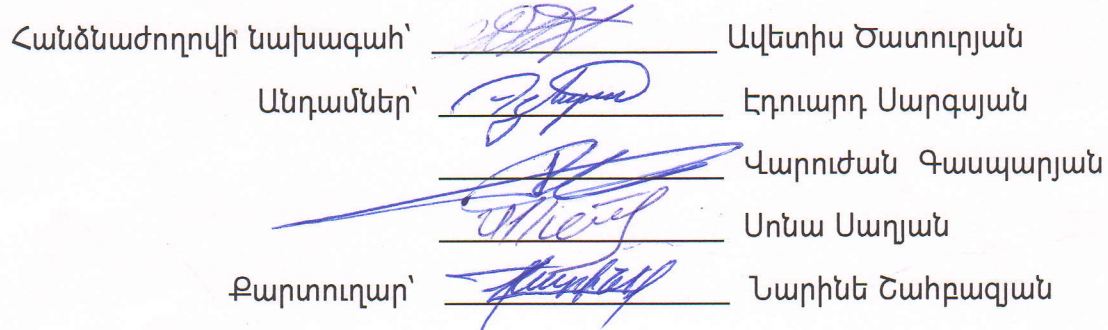 Հանձնաժողովի նախագահ՝ Ավետիս Ծատուրյան
Անդամներ՝ Էդուարդ Սարգսյան
Վարուժան Գասպարյան
Սոնա Սաղյան
Քարտուղար՝ Նարինե Շահբազյան